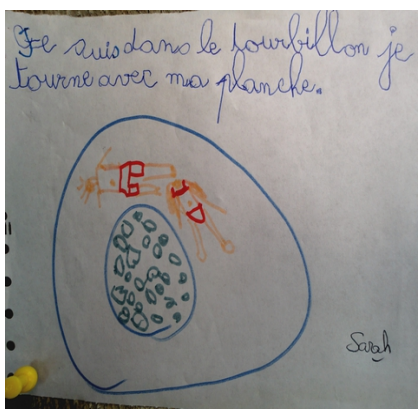 Je suis dans le tourbillon je
tourne avec ma planche.
Sarah